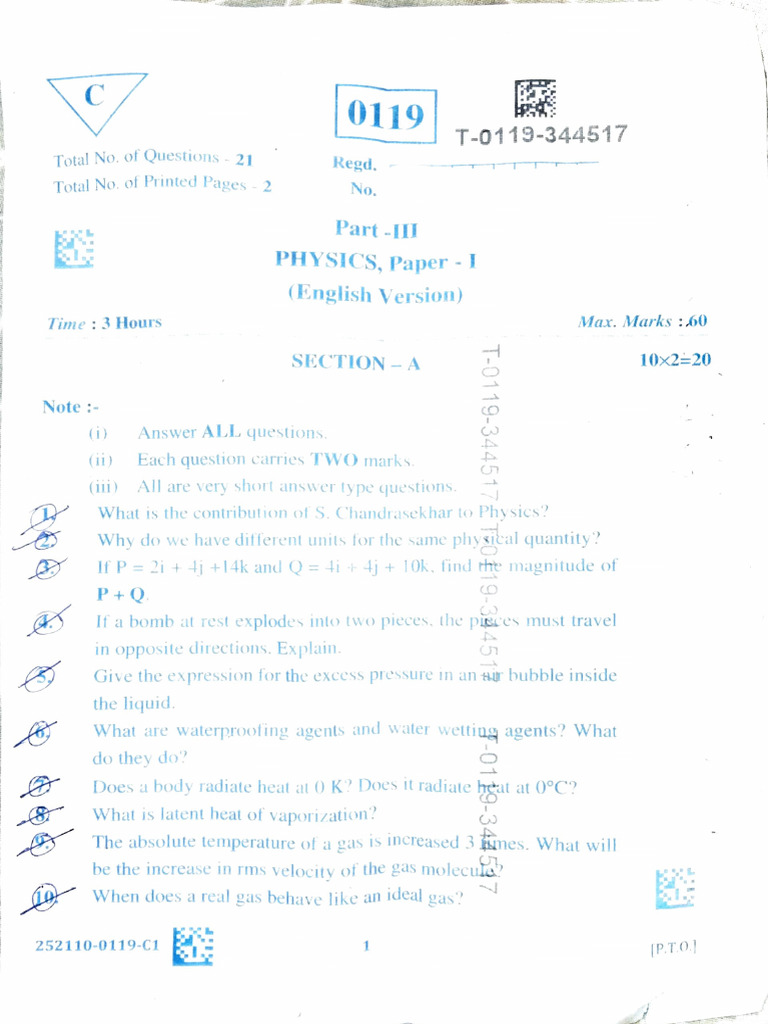 C
0119
T-0119-344517
Total No. of Questions - 21
Regd.
Total No. of Printed Pages - 2
No.
Part -III
PHYSICS, Paper - I
(English Version)
Time : 3 Hours
Max. Marks : 60
SECTION – A
10×2=20
Note :-
(i) Answer ALL questions.
(ii) Each question carries TWO marks.
(iii) All are very short answer type questions.
1. What is the contribution of S. Chandrasekhar to Physics?
2. Why do we have different units for the same physical quantity?
3. If P = 2i + 4j +14k and Q = 4i + 4j + 10k, find the magnitude of
P + Q.
4. If a bomb at rest explodes into two pieces, the pieces must travel
in opposite directions. Explain.
5. Give the expression for the excess pressure in an air bubble inside
the liquid.
6. What are waterproofing agents and water wetting agents? What
do they do?
7. Does a body radiate heat at 0 K? Does it radiate heat at 0°C?
8. What is latent heat of vaporization?
9. The absolute temperature of a gas is increased 3 times. What will
be the increase in rms velocity of the gas molecule?
10. When does a real gas behave like an ideal gas?
T-0119-344517 T-0119-344517 T-0119-344517
252110-0119-C1
1
[P.T.O.]